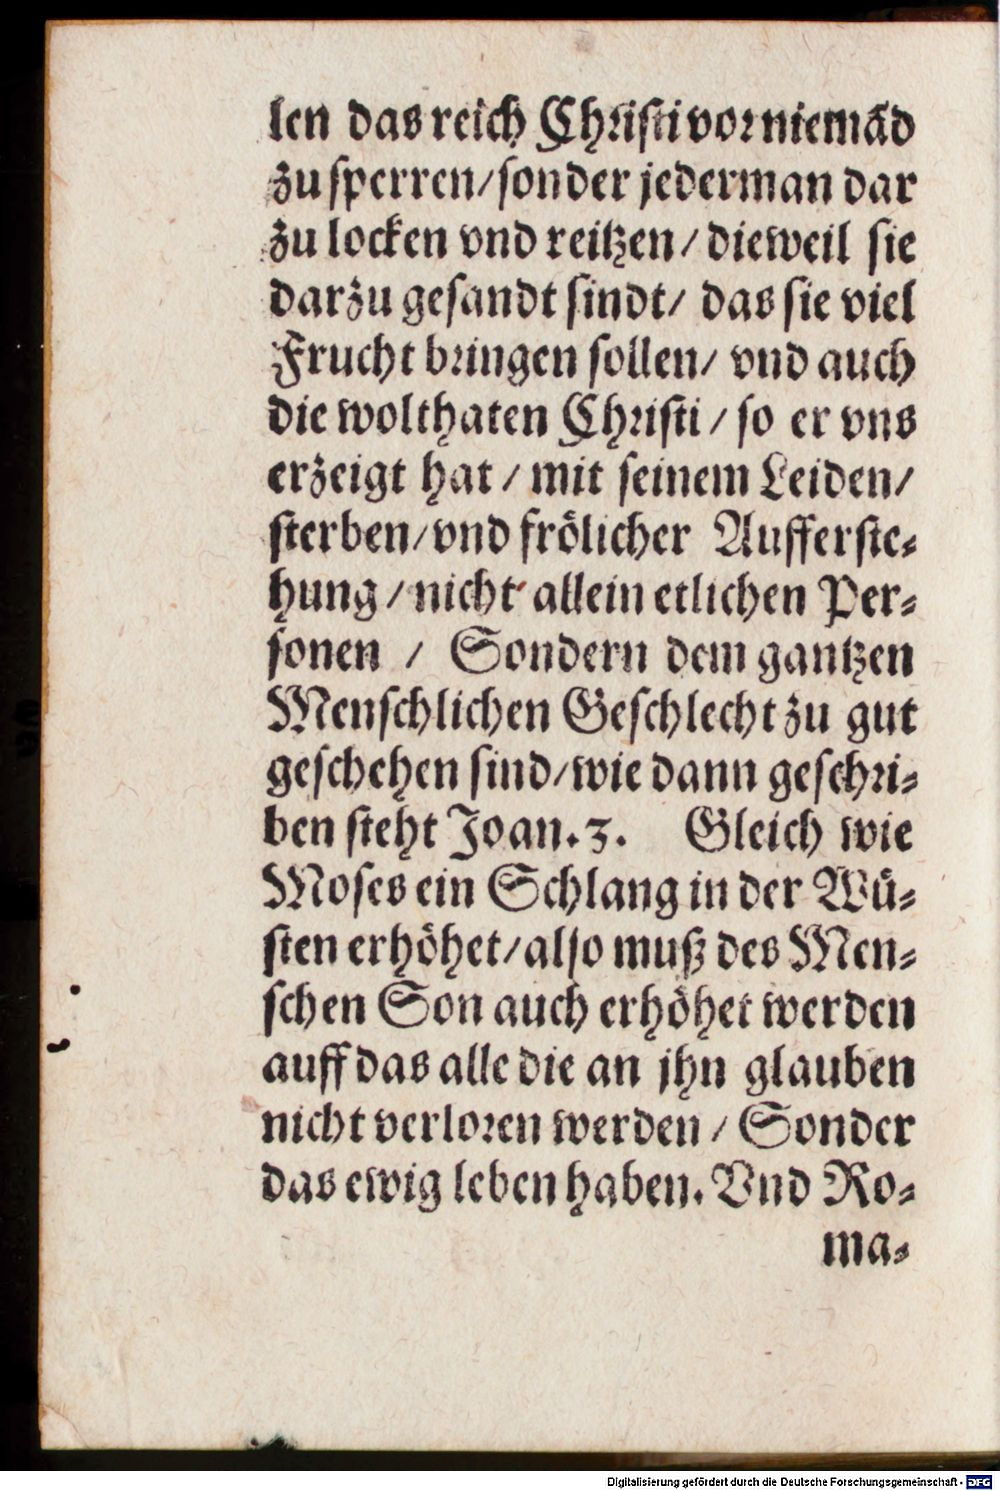 len das reich Christi vor niemãd
zu sperren/sonder jederman dar
zu locken vnd reitzen/dieweil sie
darzu gesandt sindt/ das sie viel
Frucht bringen sollen/ vnd auch
die wolthaten Christi/so er vns
erzeigt hat/mit seinem Leiden/
sterben/vnd frölicher Aufferste-
hung/nicht allein etlichen Per-
sonen / Sondern dem gantzen
Menschlichen Geschlecht zu gut
geschehen sind/wie dann geschri-
ben steht Joan.3. Gleich wie
Moses ein Schlang in der Wü-
sten erhöhet/also muß des Men-
schen Son auch erhöhet werden
auff das alle die an jhn glauben
nicht verloren werden/Sonder
das ewig leben haben. Vnd Ro-
ma-
Digitalisierung gefördert durch die Deutsche Forschungsgemeinschaft - DFG